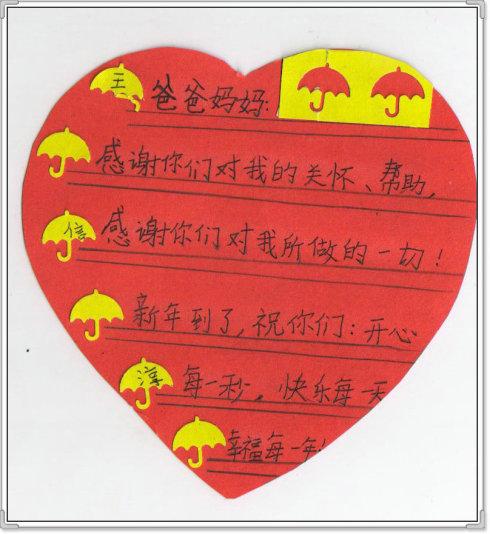 王
爸爸妈妈:
感谢你们对我的关怀、帮助,
信
感谢你们对我所做的一切!
新年到了,祝你们:开心
淳
每一秒,快乐每一天
幸福每一年